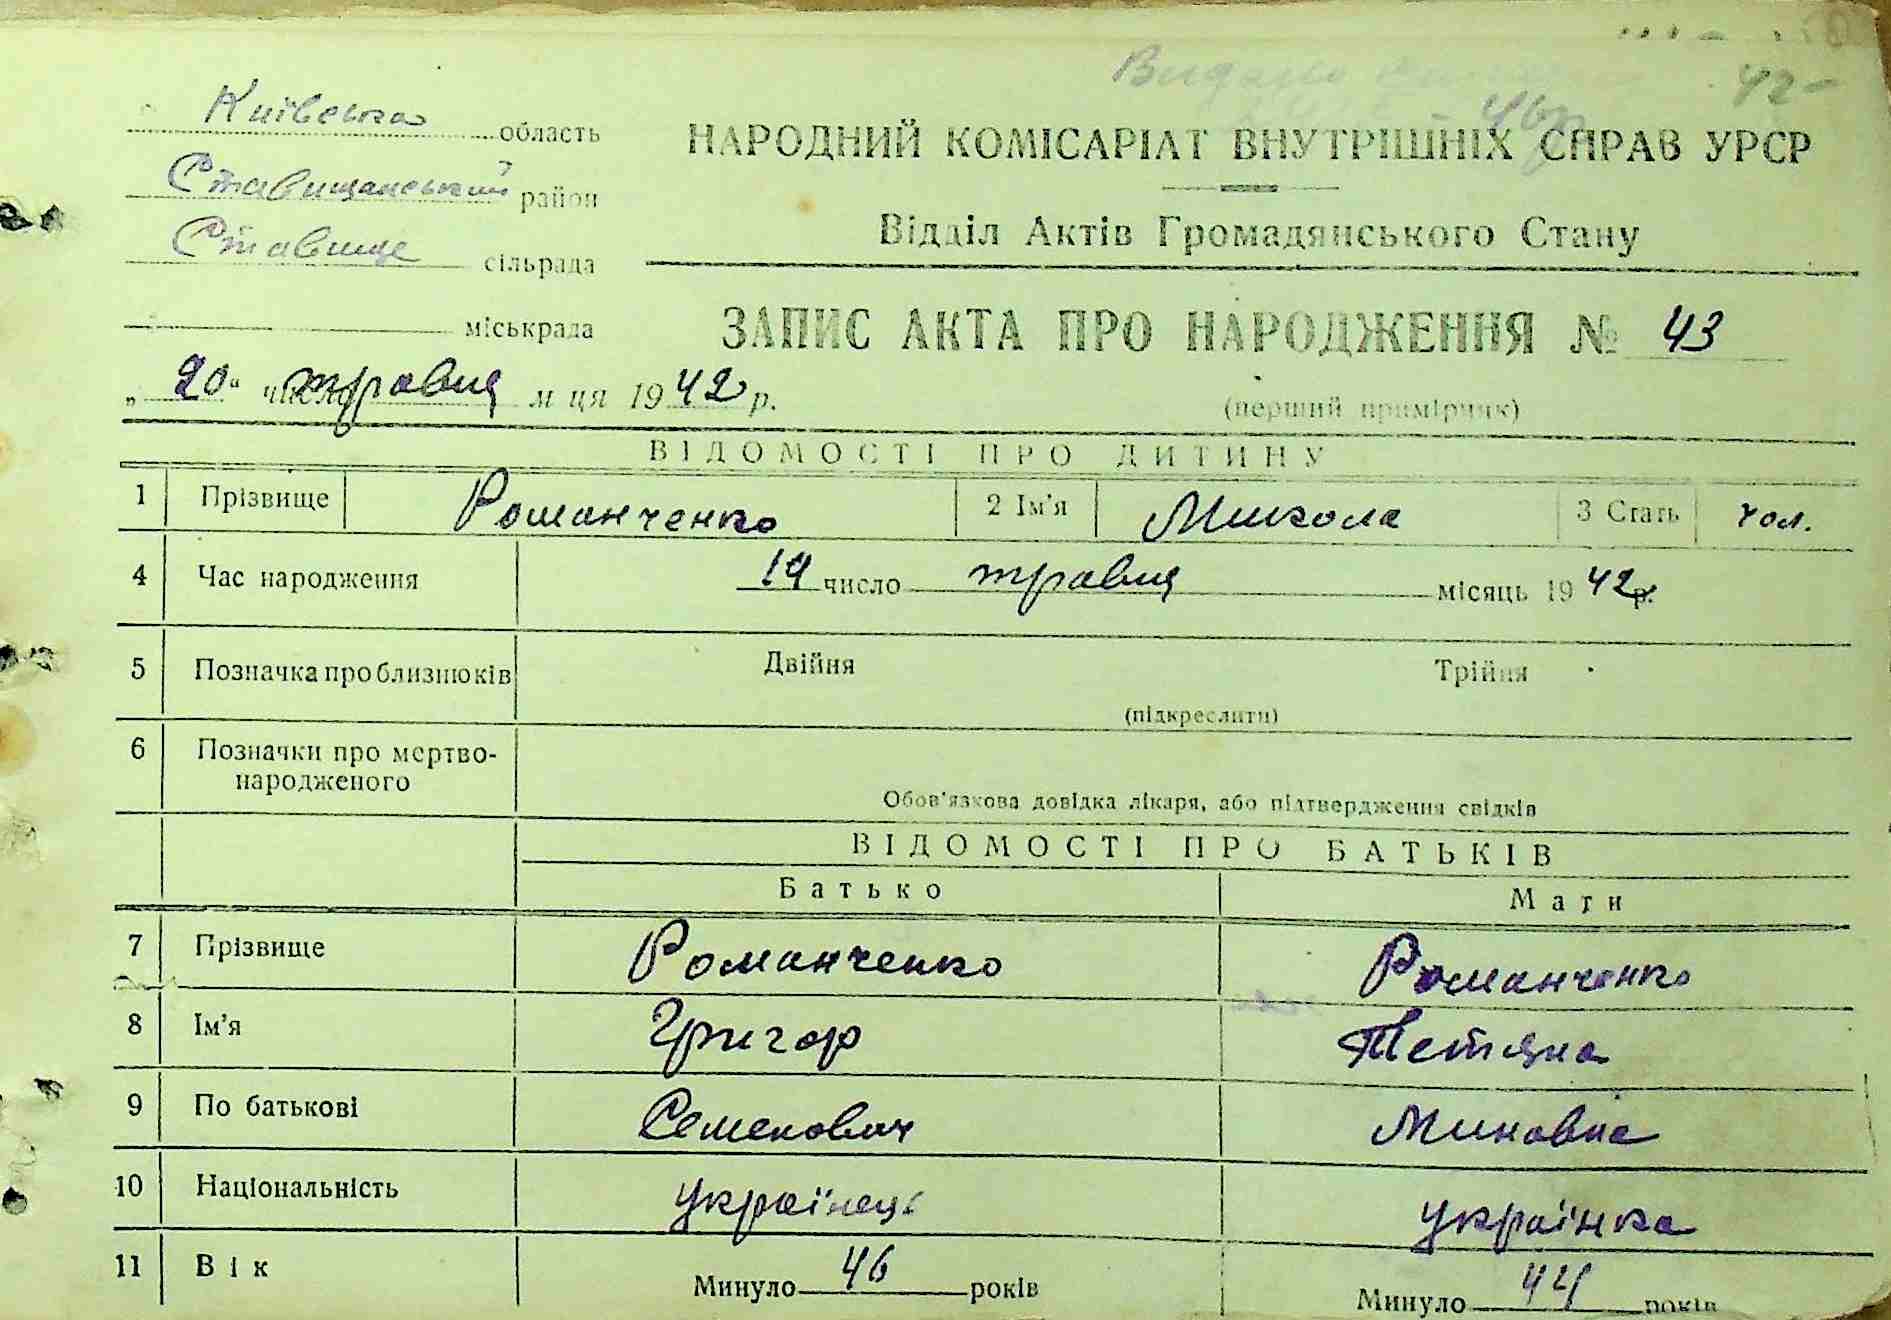 Видано
42-
46р
Київська область
НАРОДНИЙ КОМІСАРІАТ ВНУТРІШНІХ СПРАВ УРСР
Ставищанський район
Відділ Актів Громадянського Стану
Ставище сільрада
міськрада
ЗАПИС АКТА ПРО НАРОДЖЕННЯ № 43
„20“ число травня м ця 1942 р.
(перший примірник)
ВІДОМОСТІ ПРО ДИТИНУ
1 Прізвище Романченко 2 Ім'я Микола 3 Стать чол.
4 Час народження 19 число травня місяць 1942р.
5 Позначка про близнюків Двійня Трійня
(підкреслити)
6 Позначки про мертво-
народженого
Обов'язкова довідка лікаря, або підтвердження свідків
ВІДОМОСТІ ПРО БАТЬКІВ
Батько Мати
7 Прізвище Романченко Романченко
8 Ім'я Григор Тетяна
9 По батькові Семенович Миновна
10 Національність українець українка
11 Вік Минуло 46 років Минуло 44 років